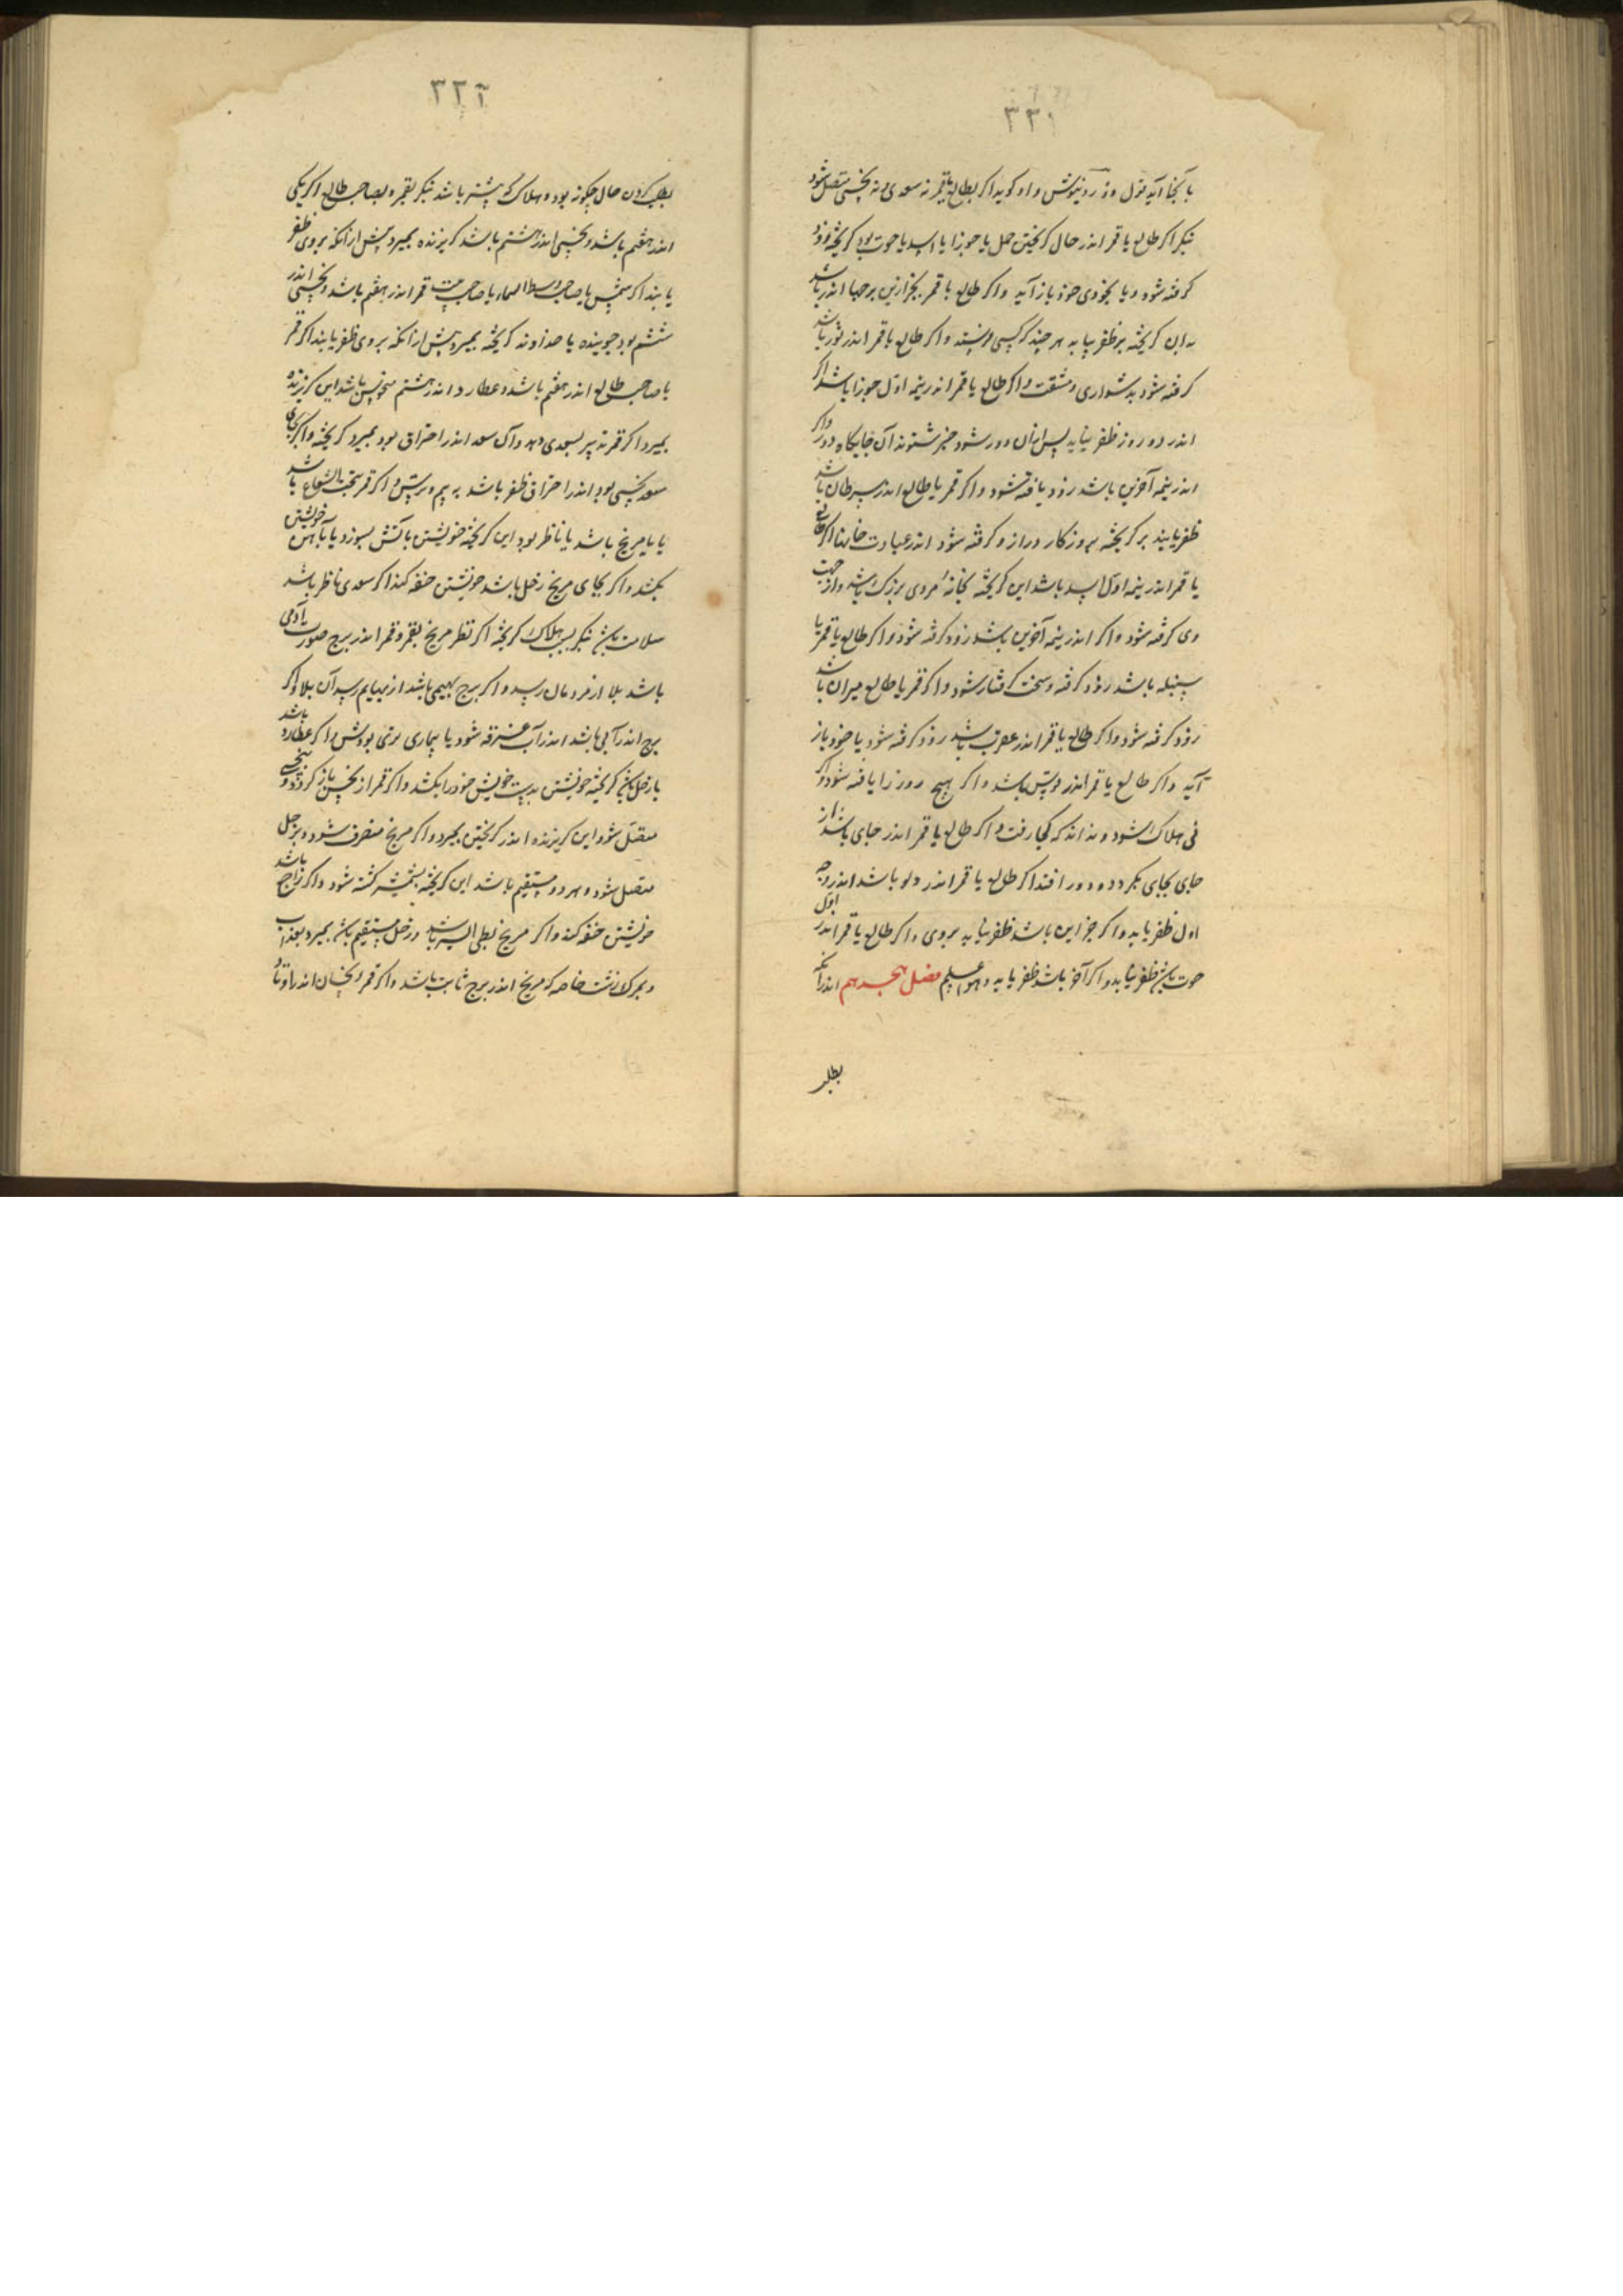 ۳۳۱
بآنجا آید نزل و زرد نیوش و او کوید اکر بطالع یا قمر نه سعدی و نه نحسی متصل شود
بنکر اکر طالع یا قمر اندر حال کریختن حمل یا جوزا یا اسد یا حوت بود کریخته زود
کرفته شود و یا بخودی خود باز آید و اکر طالع یا قمر بجز ازین برجها اندر باشد
بدان کریخته بر ظفر نیابد هر چند که کسی فرستد و اکر طالع یا قمر اندر ثور باشد
کرفته شود بدشواری و مشقت و اکر طالع یا قمر اندر نیمه اول جوزا باشد اکر
اندر دو روز ظفر نیابد پس ازان دور شود خبر شنوند آن جایکاه دور و اکر
اندر نیمه آخرین باشد زود یافته شود و اکر قمر یا طالع اندر سرطان باشد
ظفر یابند بر کریخته بروزکار دراز و کرفته شود اندر عبادت خانها اکر طالع
یا قمر اندر نیمه اول اسد باشد این کریخته بخانه مردی بزرک باشد و از جهت
وی کرفته شود و اکر اندر نیمه آخرین باشد زود کرفته شود و اکر طالع یا قمر یا
سنبله باشد زود کرفته و سخت کرفتار شود و اکر قمر یا طالع میزان باشد
زود کرفته شود و اکر طالع یا قمر اندر عقرب باشد زود کرفته شود یا خود باز
آید و اکر طالع یا قمر اندر قوس باشد و اکر هیچ روز را یافته شود و اکر
فی هلاک شود و نداند که کجا رفت و اکر طالع یا قمر اندر جدی باشد از
جای بجای بکردد و دور افتد اکر طالع یا قمر اندر دلو باشد اندر وجه
اول ظفر یابد و اکر جز این باشد ظفر نیابد بروی و اکر طالع یا قمر اندر اول
حوت باشد ظفر نیابد و اکر آخر باشد ظفر یابد و هو اعلم فصل هجدهم اندر آنکه
بطلب
۳۳۲
بطلب کردن حال چکونه بود و هلاک که بیشتر باشد بنکر بقمر و بصاحب طالع اکر یکی
اندر هفتم باشد و نحسی اندر هشتم باشد کریزنده بمیرد پیش از آنکه بر وی ظفر
یابند اکر شمس یا صاحب وسط السماء یا صاحب بیت قمر اندر هفتم باشد و نحسی اندر
ششم بود جوینده یا خداوند کریخته بمیرد پیش از آنکه بر وی ظفر یابند اکر قمر
یا صاحب طالع اندر هفتم باشد و عطارد اندر هشتم منحوس باشد این کریزنده
بمیرد اکر قمر تدبیر بسعدی دهد و آن سعد اندر احتراق بود بمیرد کریخته و اکر بجای
سعد نحسی بود اندر احتراق ظفر باشد به بیم و ترس و اکر قمر تحت الشعاع باشد
یا با مریخ باشد یا ناظر بود این کریخته خویشتن بآتش بسوزد یا بآهن خویشتن
بکشد و اکر بجای مریخ زحل باشد خویشتن خفه کند اکر سعدی ناظر باشد
سلامت باشد بنکر بسبب هلاک کریخته اکر نظر مریخ بقمر و قمر اندر برج صورت آدمی
باشد بلا از مردمان رسد و اکر برج بهیمی باشد از بهایم رسد آن بلا و اکر
برج اندر آبی باشد اندر آب غرقه شود یا بیماری تری بودش و اکر عطارد باشد
با زحل باشد کریخته خویشتن بدست خویش خود را بکشد و اکر قمر از نحس باز کردد و بنحسی
متصل شود این کریزنده اندر کریختن بمیرد و اکر مریخ منصرف شود و بزحل
متصل شود و هر دو مستقیم باشد این کریخته بشمشیر کشته شود و اکر راجع باشد
خویشتن خفه کند و اکر مریخ بطی السیر باشد و زحل مستقیم باشد بمیرد بعذاب
و بمرک زشت خاصه که مریخ اندر برج ثابت باشد و اکر قمر و نحسان اندر اوتاد